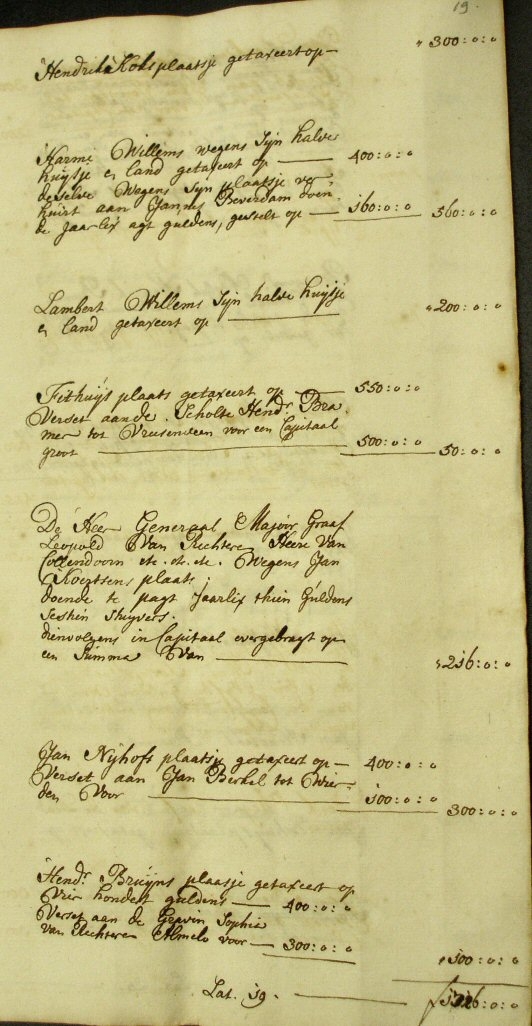 19.
Hendrik Kols plaatsje getaxeert op — " 300:0:0
Harmi Willems wegens Sijn halve
huijsje en land getaxeert op — 400:0:0
deselve Wegens Sijn plaatsje ver
huirt aan Jannes Beverdam doen
de jaarlix agt guldens, gestelt op — 160:0:0 560:0:0
Lambert Willems Sijn halve huijsje
en land getaxeert op — " 200:0:0
Fithuijs plaats getaxeert op — 550:0:0
Verset aan de Scholte Hendr. Bra
mer tot Vriesenveen voor een Capitaal
groot — 500:0:0 50:0:0
De Heer Generaal Majoir Graaf
Leopold Van Rechtere Heere Van
Collendoorn etc. etc. etc. Wegens Jan
Koertsens plaats
doende te pagt Jaarlix thien Guldens
Seshien stuyvers.
dienvolgens in Capitaal overgebragt op
een Summa Van — " 216:0:0
Jan Nijhofs plaatsje getaxeert op — 400:0:0
Verset aan Jan Berkel tot Wier
den Voor — 100:0:0 300:0:0
Hendr. Bruijns plaatsje getaxeert op
Vier hondert guldens — 400:0:0
Verset aan de Gravin Sophia
Van Rechteren Almelo voor — 300:0:0 " 100:0:0
Lat. 19. — 1726:0:0